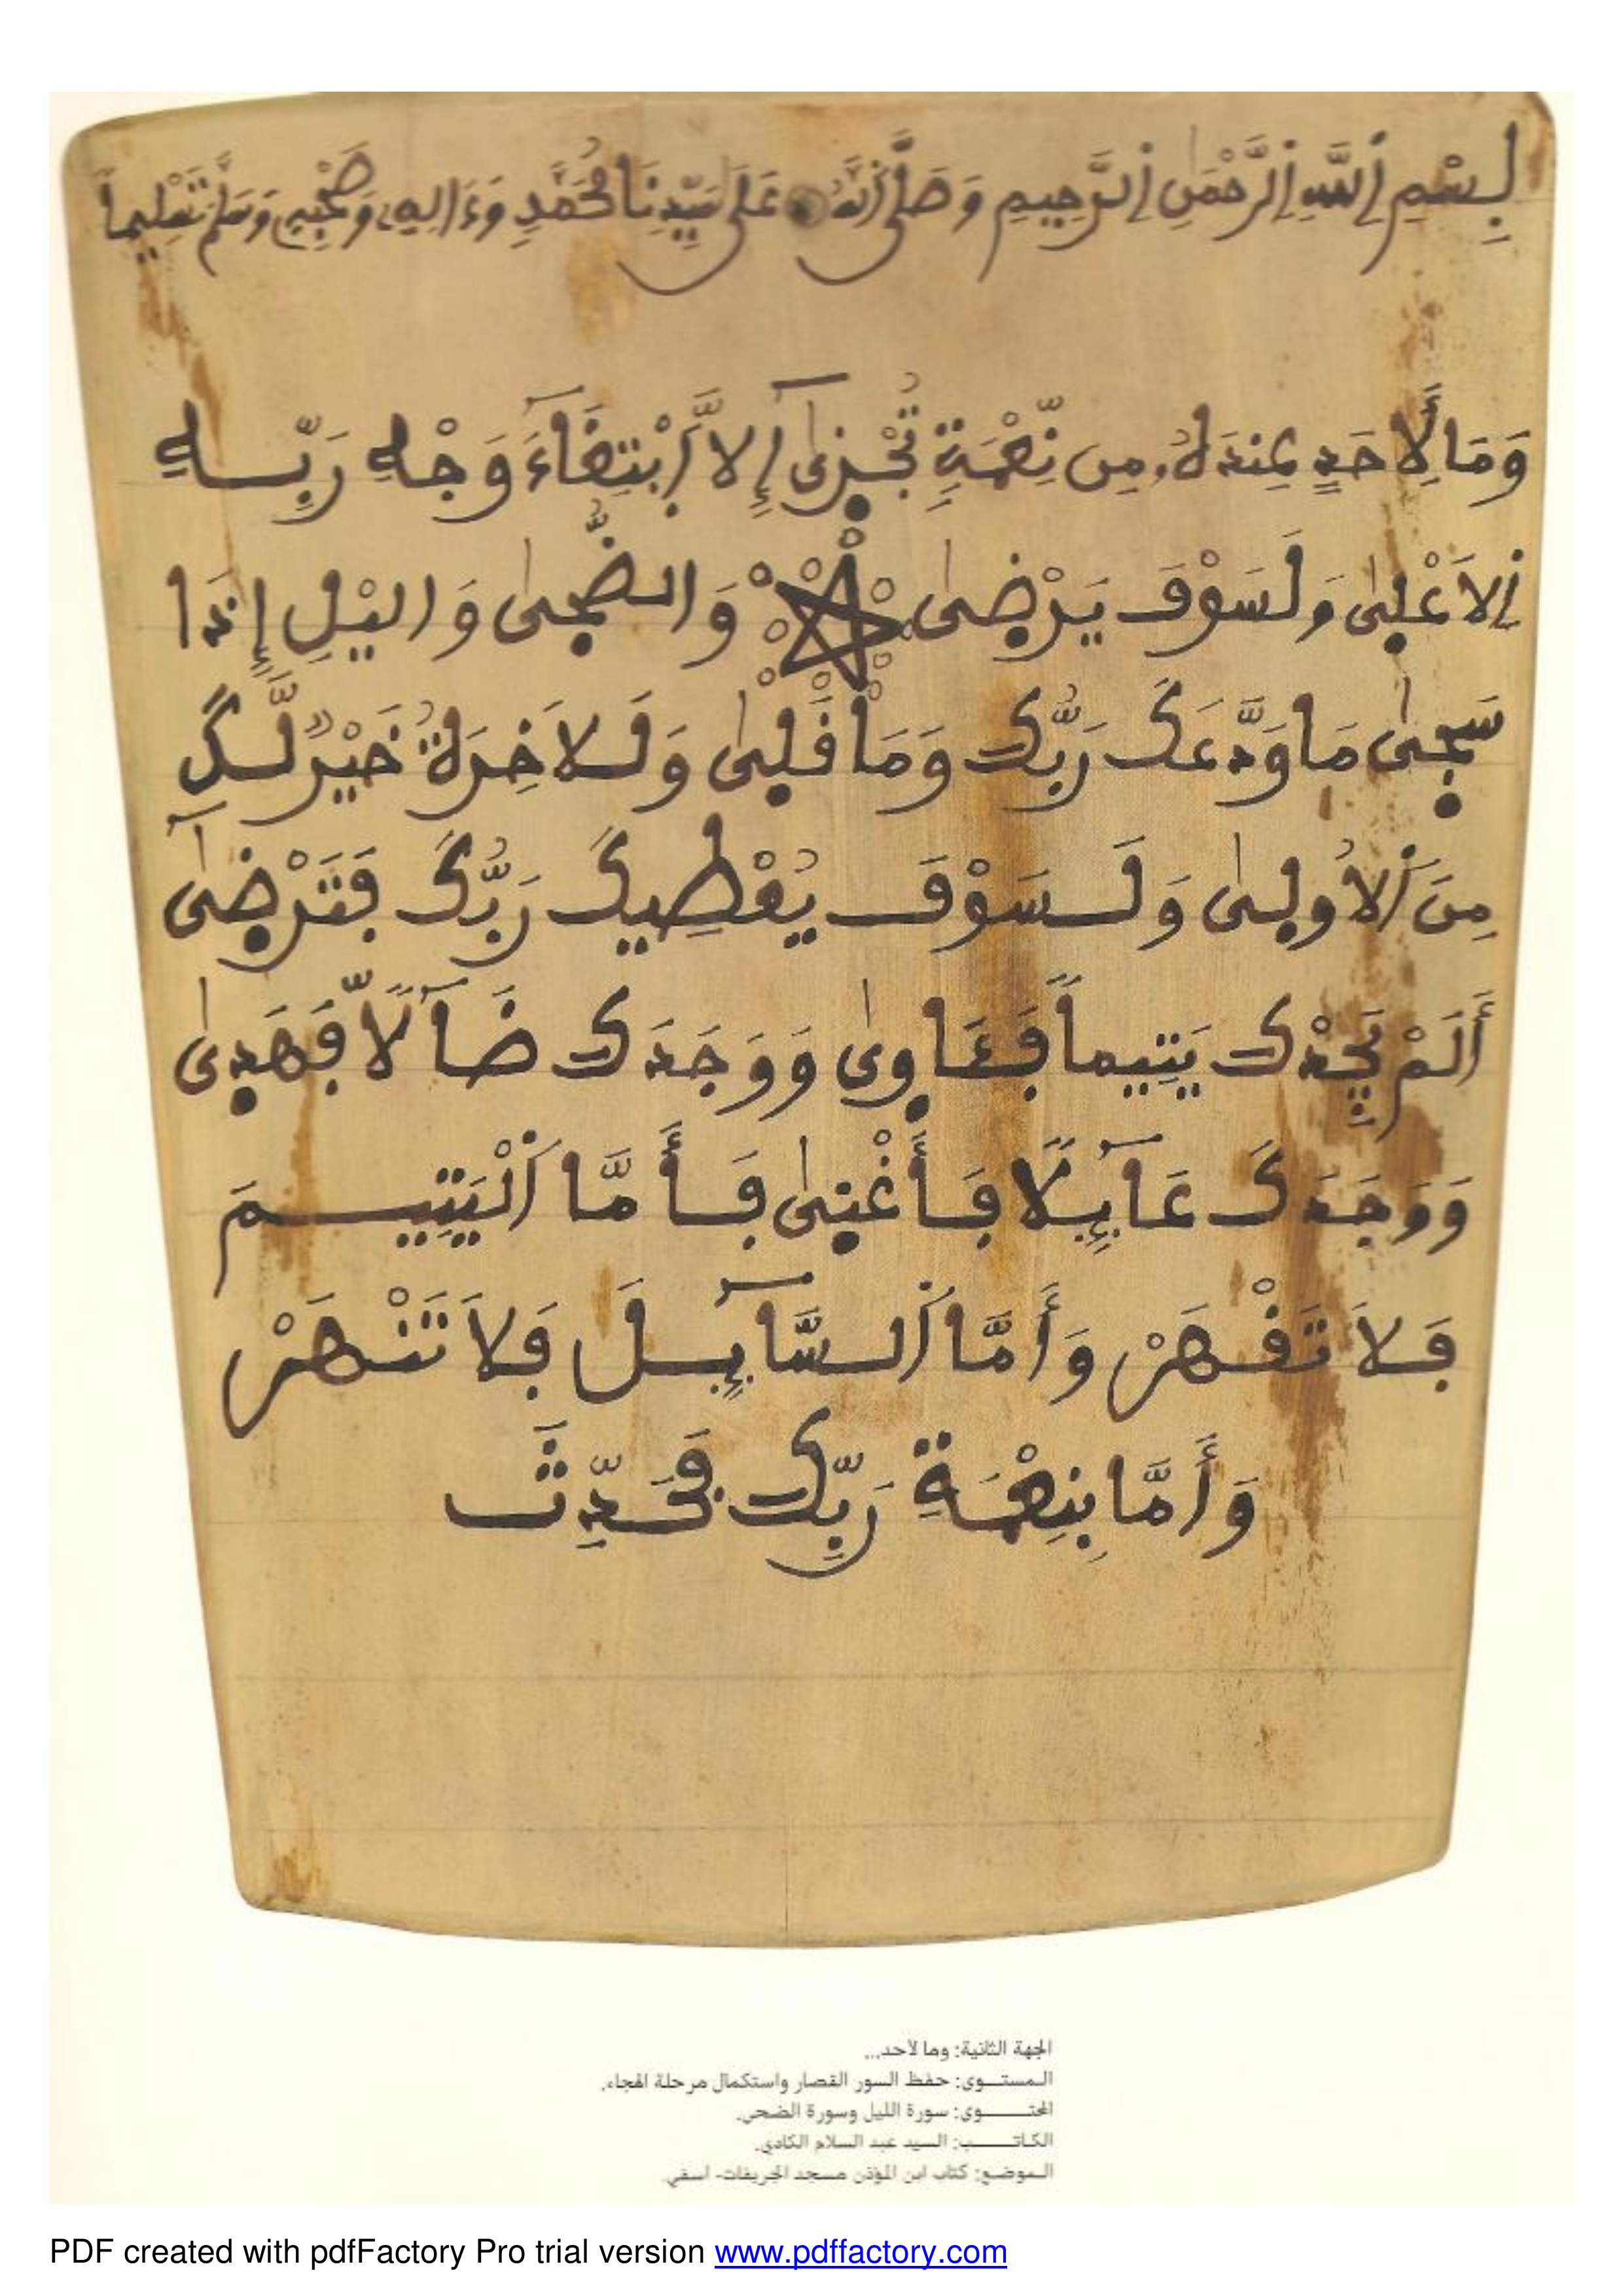 بِسْمِ اِ۬للَّهِ اِ۬لرَّحْمَٰنِ اِ۬لرَّحِيمِ وَصَلَّى اَ۬للَّهُ عَلَىٰ سَيِّدِنَا مُحَمَّدٍ وَءَالِهِۦ وَصَحْبِهِۦ وَسَلَّمَ تَسْلِيماً
وَمَا لِأَحَدٍ عِندَهُۥ مِن نِّعْمَةٖ تُجْز۪ىٰٓ إِلَّا اَ۪بْتِغَآءَ وَجْهِ رَبِّهِ
اِ۬لَاعْل۪ىٰ وَلَسَوْفَ يَرْض۪ىٰ وَالضُّح۪ىٰ وَاليْلِ إِذَا
سَج۪ىٰ مَا وَدَّعَكَ رَبُّكَ وَمَا قَل۪ىٰ وَلَلَاخِرَةُ خَيْرٞ لَّكَ
مِنَ اَ۬لُاول۪ىٰ وَلَسَوْفَ يُعْطِيكَ رَبُّكَ فَتَرْض۪ىٰٓ
أَلَمْ يَجِدْكَ يَتِيماٗ فَـَٔاو۪ىٰ وَوَجَدَكَ ضَآلّاٗ فَهَد۪ىٰ
وَوَجَدَكَ عَآئِلاٗ فَأَغْن۪ىٰ فَأَمَّا اَ۬لْيَتِيمَ
فَلَا تَقْهَرْ وَأَمَّا اَ۬لسَّآئِلَ فَلَا تَنْهَرْ
وَأَمَّا بِنِعْمَةِ رَبِّكَ فَحَدِّثْ
الجهة الثانية: وما لأحد...
المستوى: حفظ السور القصار واستكمال مرحلة الهجاء.
المحتوى: سورة الليل وسورة الضحى.
الكاتب: السيد عبد السلام الكادي.
الموضع: كتاب ابن المؤذن مسجد الجريفات- آسفي.
PDF created with pdfFactory Pro trial version www.pdffactory.com